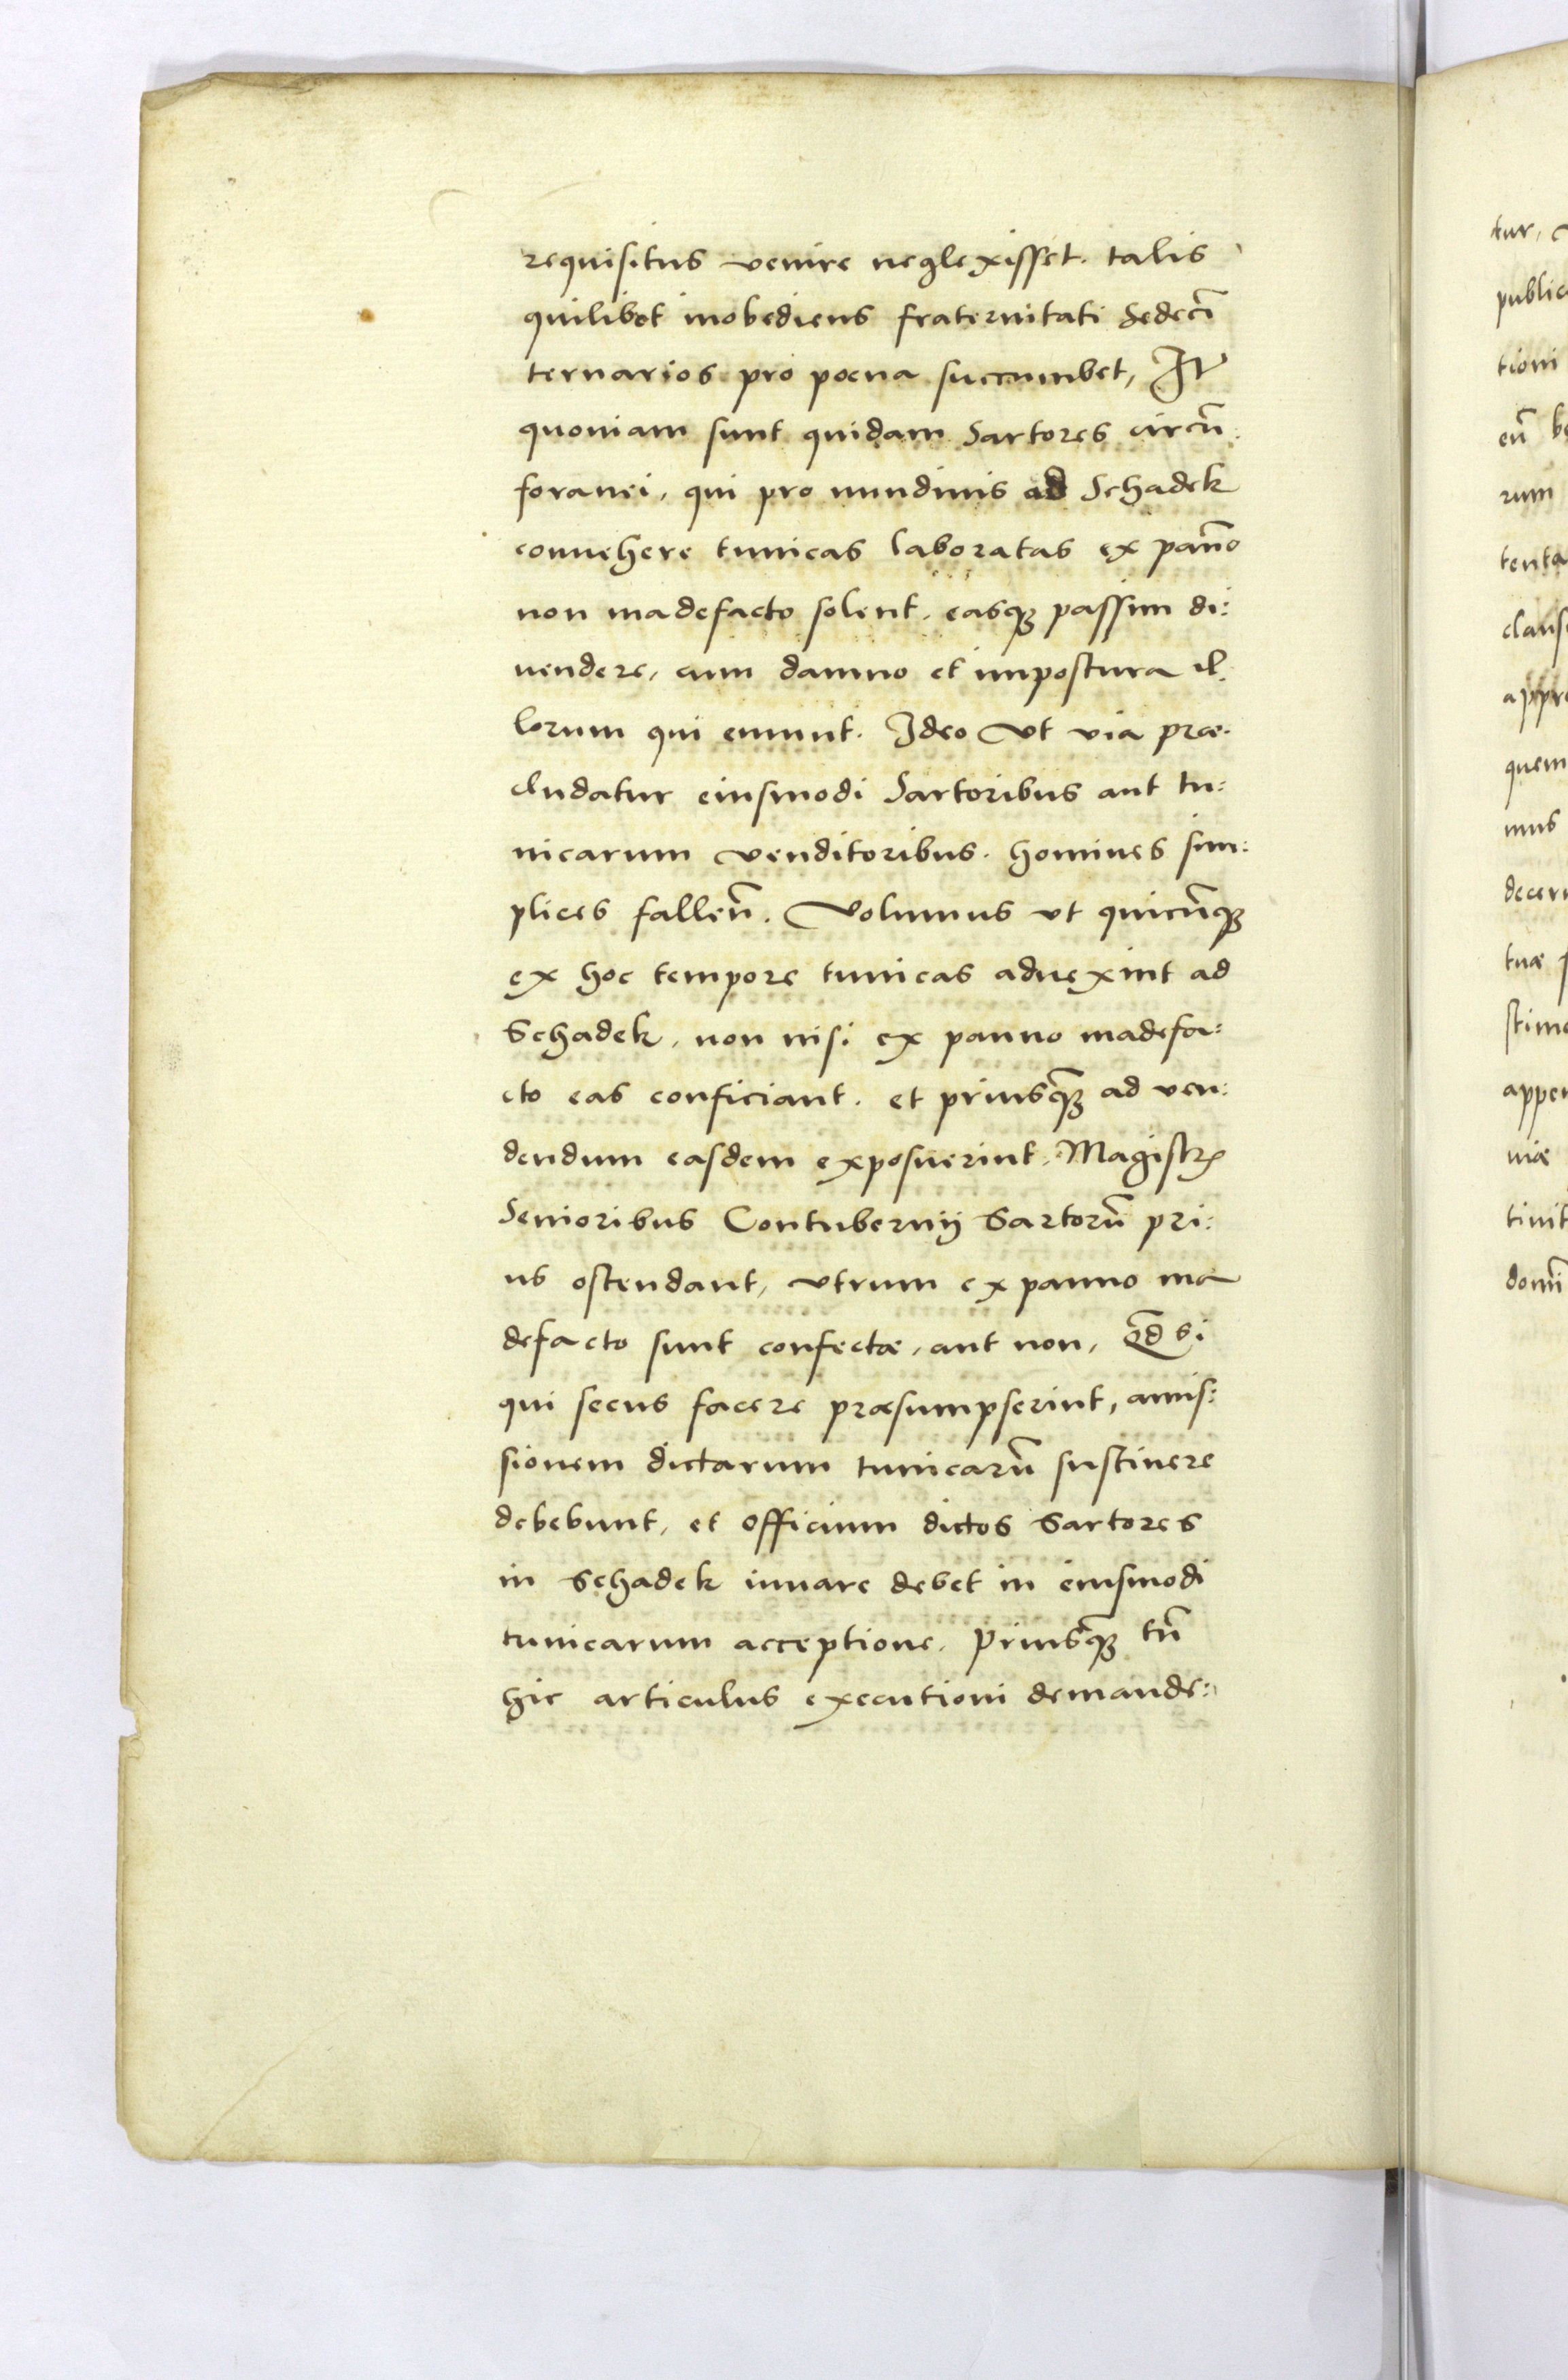 requisitus venire neglexisset. talis
quilibet inobediens fraternitati sedecī
ternarios pro poena succumbet, It
quoniam sunt quidam Sartores circū.
foranei, qui pro nundinis ad Schadek
conuehere tunicas laboratas ex pañno
non madefacto solent, easq₃ passim di:
uendere, cum damno et impostura il.
lorum qui emunt. Ideo vt via præ.
cludatur eiusmodi Sartoribus aut tu:
nicarum venditoribus. homines sim:
plices falleñ. Volumus vt quicūq₃
ex hoc tempore tunicas aduexint ad
Schadek, non nisi ex panno madefa:
cto eas conficiant. et priusq̄₃ ad ven:
dendum easdem exposuerint, Magistrꝭ
Senioribus Contubernij Sartorū pri:
us ostendant, vtrum ex panno ma
defacto sunt confectæ, aut non, Qd̄ si
qui secus facere præsumpserint, amis:
sionem dictarum tunicarū sustinere
debebunt, et Officium dictos Sartores
in Schadek iuuare debet in eiusmodi
tunicarum acceptione. Priusq̄₃ tñ
hic articulus executioni demande:
tur,
public
tioni
eū
rum
tenta
claus
appr
quem
mus
decer
tuæ
stim
appen
niæ
tinit
domi